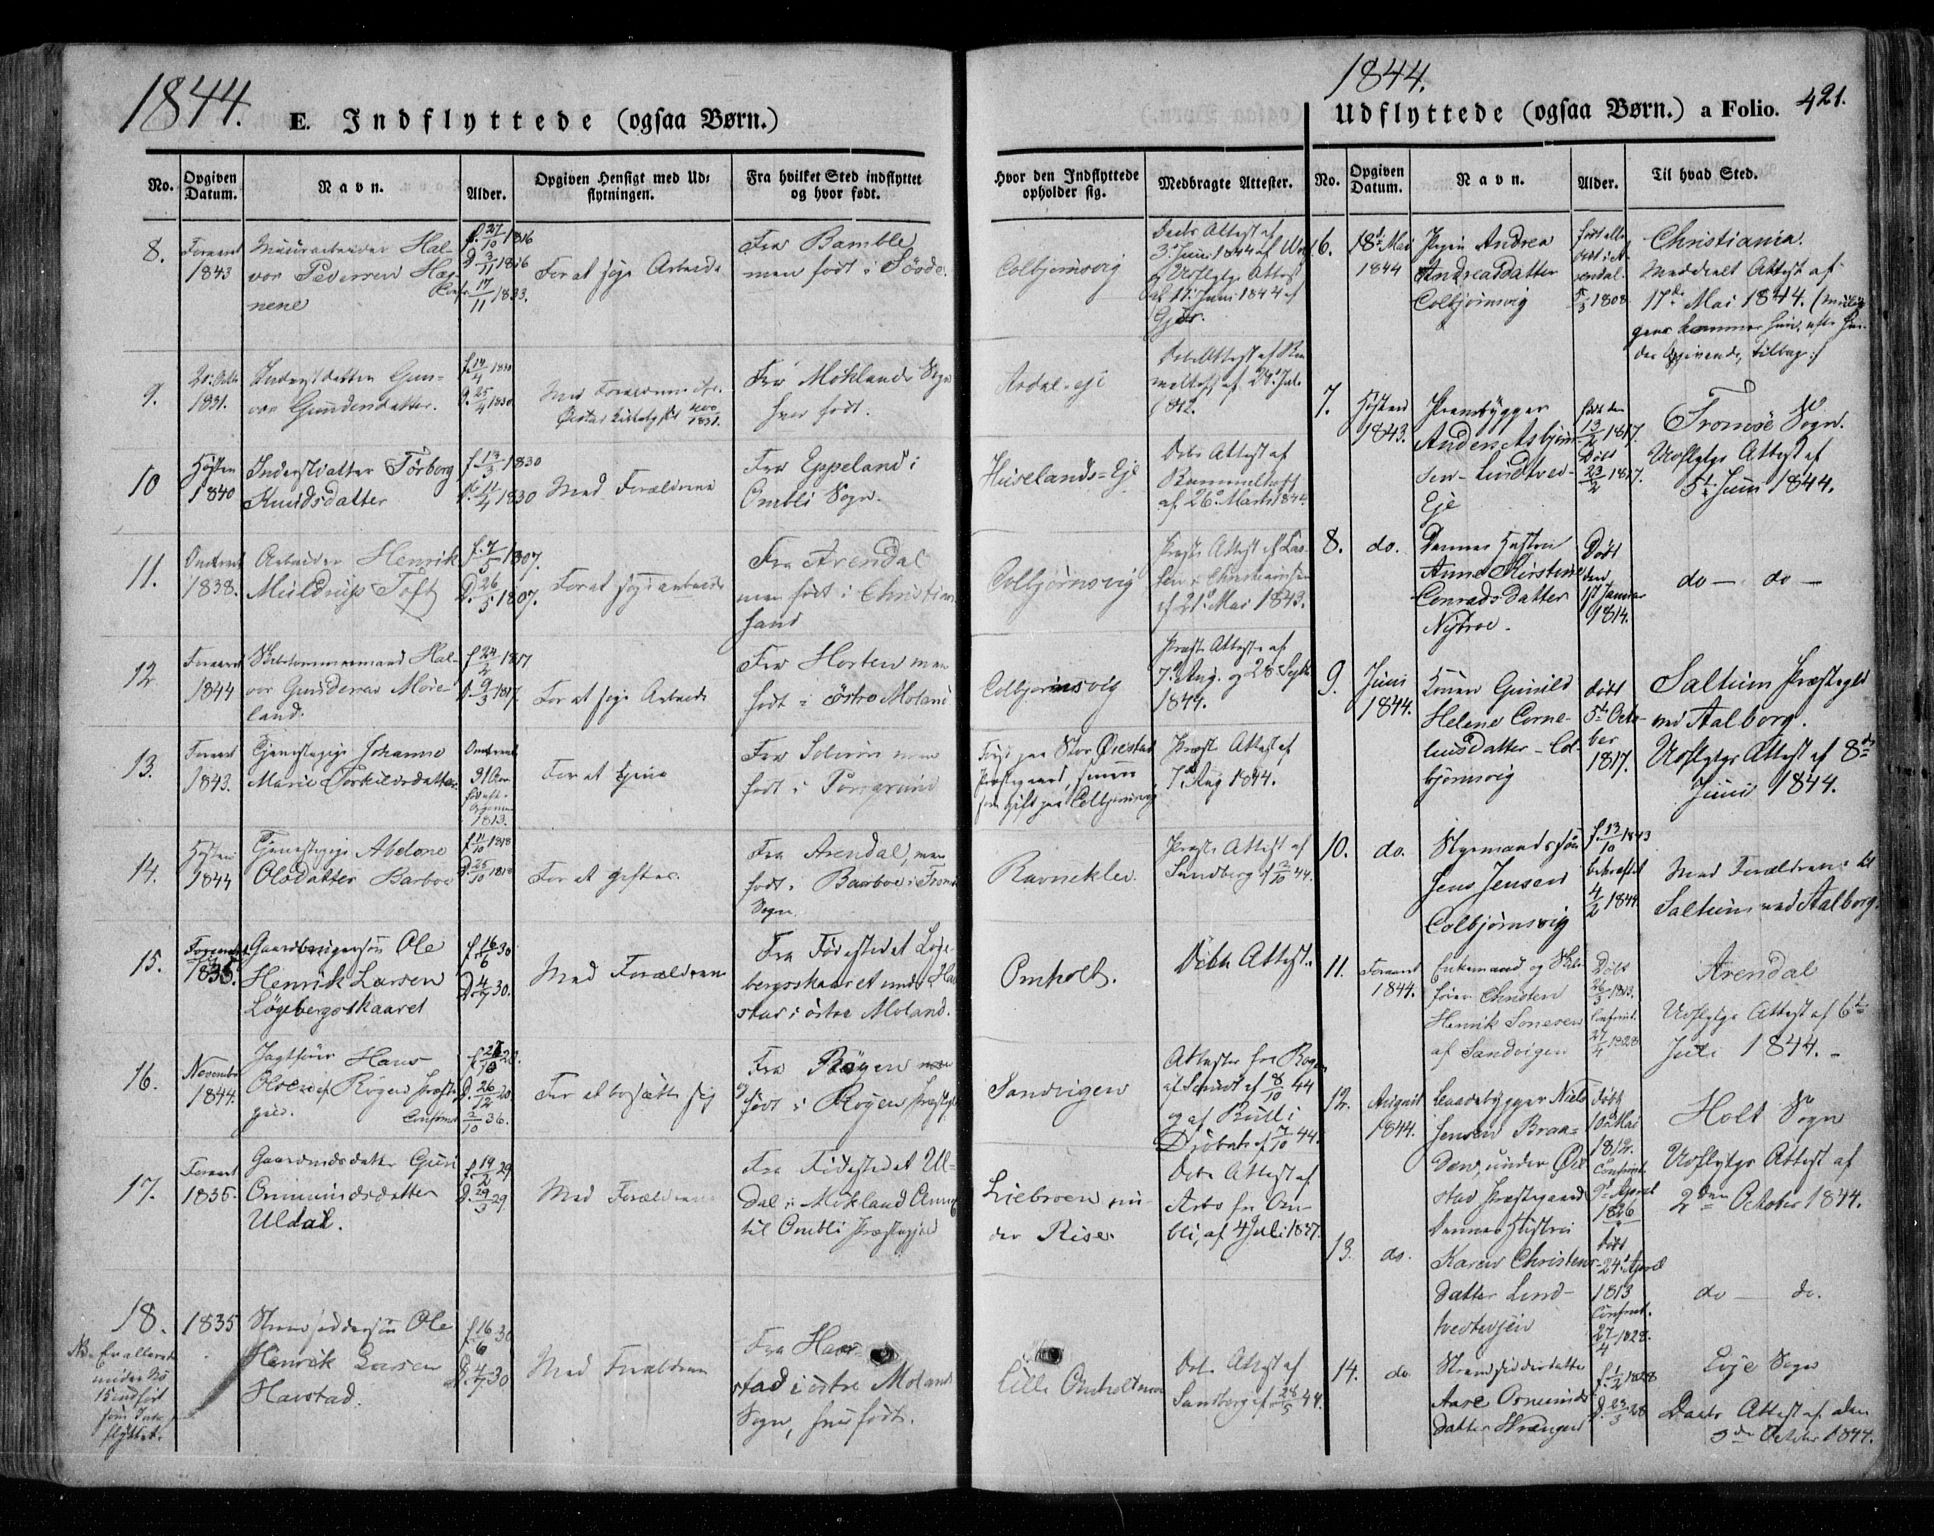 1844.
E. Indflyttede (ogsaa Børn.)
No.
Opgiven Datum.
Navn.
Alder.
Opgiven Hensigt med Ud:
flytningen.
Fra hvilket Sted indflyttet
og hvor født.
Hvor den Indflyttede
opholder sig.
Medbragte Attester.
8.
Foraaret
1843
Hal-
vor Pedersen
nene
f. 27/10 1816
D. 3/11 1816
17/11 1833.
For at søge Arbeide
Fra Bamble
men født i
Colbjørnsvig
Daabs Attest af
3. Juni 1844 af
Udflytgs Attest
Juni 1844 af
9.
1831.
Gun-
vor Gundersdatter.
f. 14/4 1830
D. 25/4 1830.
Med
1831.
Fra Moklands Sogn
her født.
Attest af
af 24. Juli
1842.
10
Høsten
1840
Torborg
Knudsdatter
f. 13/3 1830
1830
Med Forældrene
Fra Eppeland i
Ombli Sogn.
Huselands-Eje
Dobs Attest af
Rummelhoff
af 26. Marts 1844.
11.
1838.
Arbeider Henrik
Muldrup Toft
f. 7/5 1807.
D. 26/5 1807.
For at søge arbeide
Fra Arendal
men født i Christian-
sand
Colbjørnsvig
Præste Attest af
Christiansen
af 21. Mai 1843.
12
Foraaret
1844
Skibstømmermand Hal-
vor Gundersen More-
land.
f. 24/2 1817
D. 9/3 1817.
For at søge Arbeide
Fra Horten men
født i østre Moland
Colbjørnsvig
Præste Attest af
7. Aug. og 28 Septb
1844.
13.
Foraaret
1843.
Tjenestepige Johanne
Marie Torkildsdatter
31 Aar
1813.
For at tjene
men
født i Porsgrund
Først paa Stor Øiestad
Præstegaard, senere
som gift paa Colbjørnsvig
Præste Attest af
7. Aug 1844.
14.
Høsten
1844
Tjenestepige Abelone
Olsdatter Barboe
f. 11/10 1818
D. 25/10 1818
For at giftes.
Fra Arendal, men
født i Barboe i Tromø
Sogn.
Ravneklev.
Præste Attest af
Sandberg af 2/10 44.
15.
1835.
Gaardbrugersøn Ole
Henrik Larsen
Løgebergsskaaret
f. 16/6 30
D. 4/7 30.
Med Forældrene
Fra Fødestedet Løge-
bergsskaaret under Hav-
stad i østre Moland.
Omholt.
Dobs Attest.
16.
November
1844.
Jagtfører Hans
Olsen af Røgen Præste-
gjeld.
Confirm.
D. 26/12 20
2/10 36.
For at bosætte sig
Fra Røgen
født i Røgen Præstegjeld
Sandvigen
Attester fra Røgen
af 8/10 44
og af Bull i
Drøbak af 7/10 44.
17.
Foraaret
1835.
Gaardmandsdatter Guri
Ommundsdatter
Uldal.
f. 19/2 29
D. 29/3 29.
Med Forældrene
Fra Fødestedet Ul-
dal i Mokland Annex
til Ombli Præstegjeld
Liebroen un-
der Rise.
Dobs Attest af
Arbo fra Om-
bli, af 4 Juli 1837.
18.
NB. Er allerede
under No
15 indført
som Ind-
flyttet.
1835
Strandsiddersøn Ole
Henrik Larsen
Havstad.
f. 16/6 30
D. 4/7 30
Med Forældrene
Fra Hav-
stad i østre Moland
Sogn, her født.
Lille Omholtmoe
Dobs Attest af
Sandberg af 28/5 44.
1844.
Udflyttede (ogsaa Børn.) a Folio.
421.
No.
Opgiven Datum.
Navn.
Alder.
Til hvad Sted.
6.
18de Mai
1844
Pigen Andrea
Andreasdatter
Colbjørnsvig
født eller
døbt i A-
rendal
1808
Christiania.
Meddeelt Attest af
17de Mai 1844.
kommer hun, efter hen-
des Opgivende, tilbage
7.
Høsten
1843.
Prambygger
Anders Asbjørn-
sen Lindtvei-
Eje
født den
13/2 1817.
Døbt
23/2 1817.
Tromøe Sogn.
Udflytgs Attest af
5te Juni 1844.
8.
do.
Dennes Hustru
Anne Kirstine
Conradsdatter
Nybroe.
Døbt
den
1st Januar
1814.
do — do —
9.
Juni
1844.
Konen Gunild
Helene Corne-
liusdatter - Col-
bjørnsvig
døbt
5te Octo-
ber
1817.
Saltum Præstegjeld
ved Aalborg.
Udflytgs Attest af 8de
Juni 1844.
10.
do.
Styrmandssøn
Jens Jensen
Colbjørnsvig
f. 13/10 1843
bekræftet
4/2 1844
Med Forældrene til
Saltum ved Aalborg.
11.
Foraaret
1844.
Enkemand og Skib-
fører Christen
Henrik Sonesen
af Sandvigen
Døbt
26/3 1813.
Confirmt.
27/4 1828
Arendal
Udflytgs Attest af 6te
Juli 1844. -
12.
August
1844.
Baadebygger Niels
Jensen Braa-
den, under Øie-
stad Præstegaard
døbt
10de Mai
1812.
Confirmt.
9. April
1826
Holt Sogn
Udflytgs Attest af
2den October 1844.
13.
do.
Dennes Hustru
Karen Christens-
datter Lind-
tveitveien
døbt
24. April
1813
Confirmt.
27/4 1828.
do — do.
14.
do
Strandsidderdatter
Aase Osmunds-
datter Strengen
f. 1/2 1828
D. 23/3 28
Eije Sogn
Daabs Attest af den
3de October 1844.